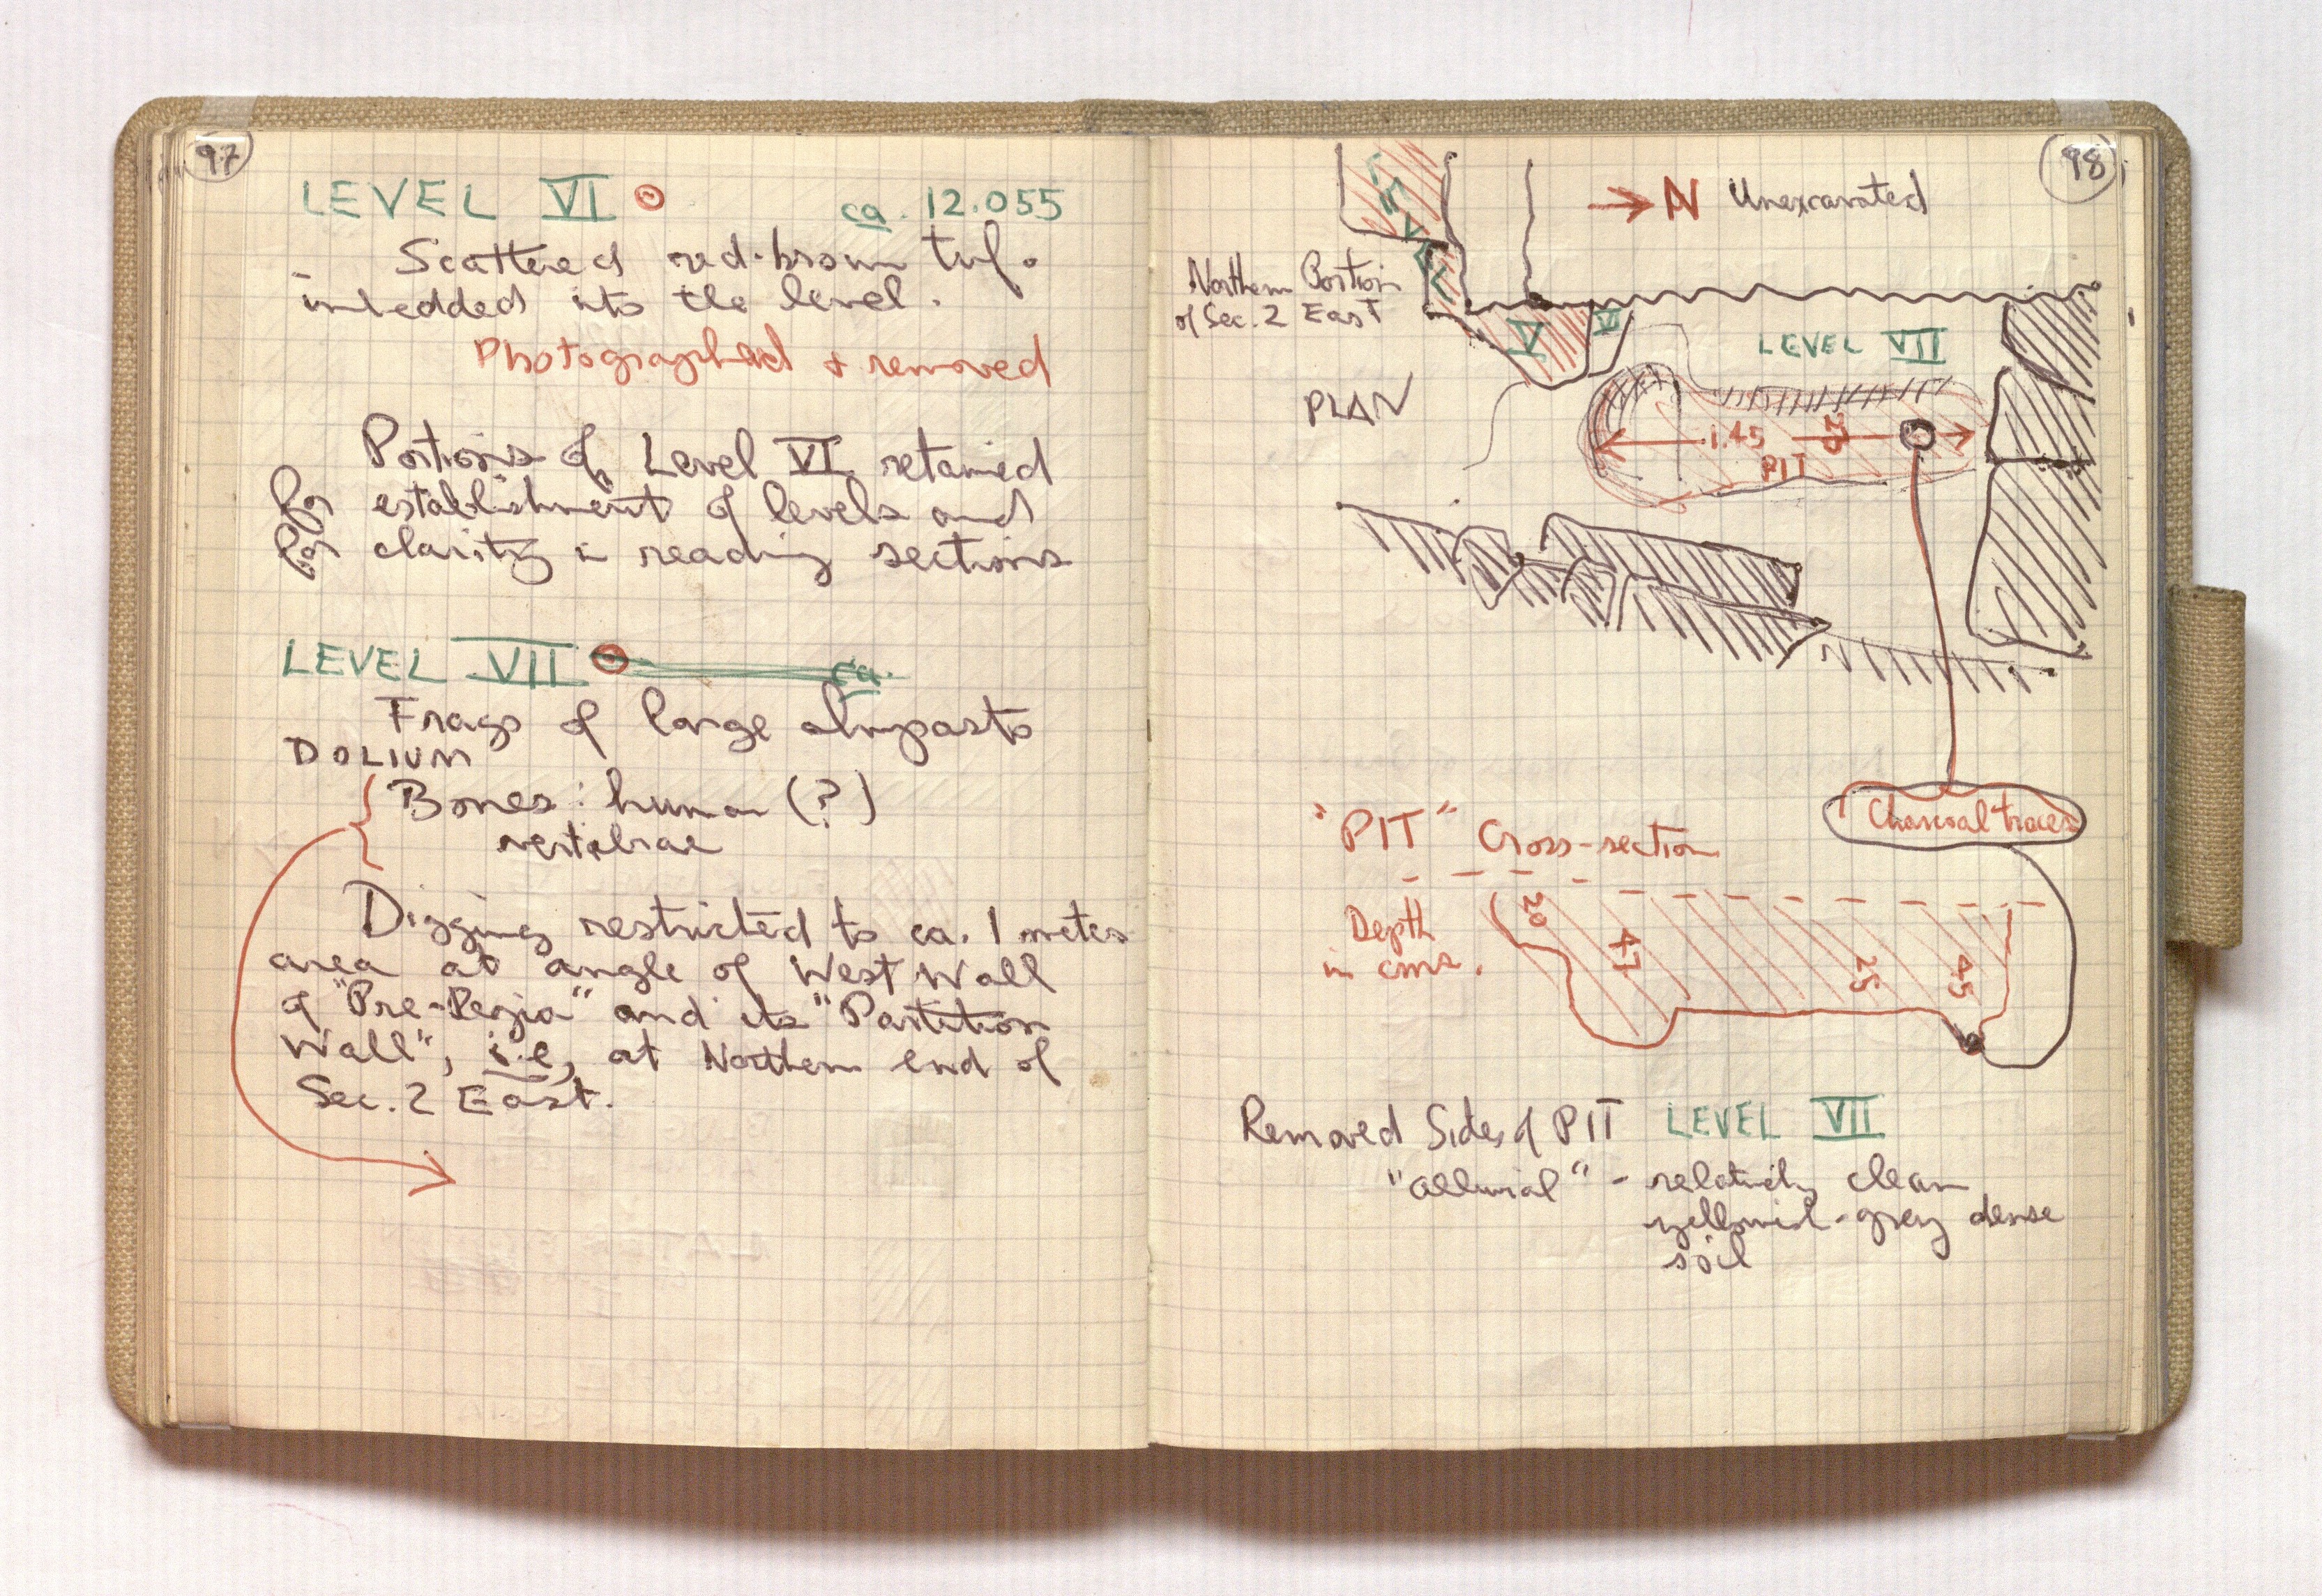 97
LEVEL VI ca. 12.055
Scattered red-brown tuf.
imbedded into the level.
Photographed + removed
Portions of Level VI retained
for establishment of levels and
for clarity in reading sections
LEVEL VII ca.
Frags of large impasto
DOLIUM
Bones: human (?)
vertebrae
Digging restricted to ca. 1 meter
area at angle of West Wall
of "Pre-Regia" and its "Partition
Wall", i.e, at Northern end of
Sec. 2 East.
98
N Unexcavated
LEVEL
Northern Portion
of Sec. 2 East
V VI
LEVEL VII
PLAN
1.45
PIT
Charcoal traces
"PIT" Cross-section
Depth
in cms.
20 47 25 45
Removed Sides of PIT LEVEL VII
"alluvial" - relatively clean
yellowish-grey dense
soil